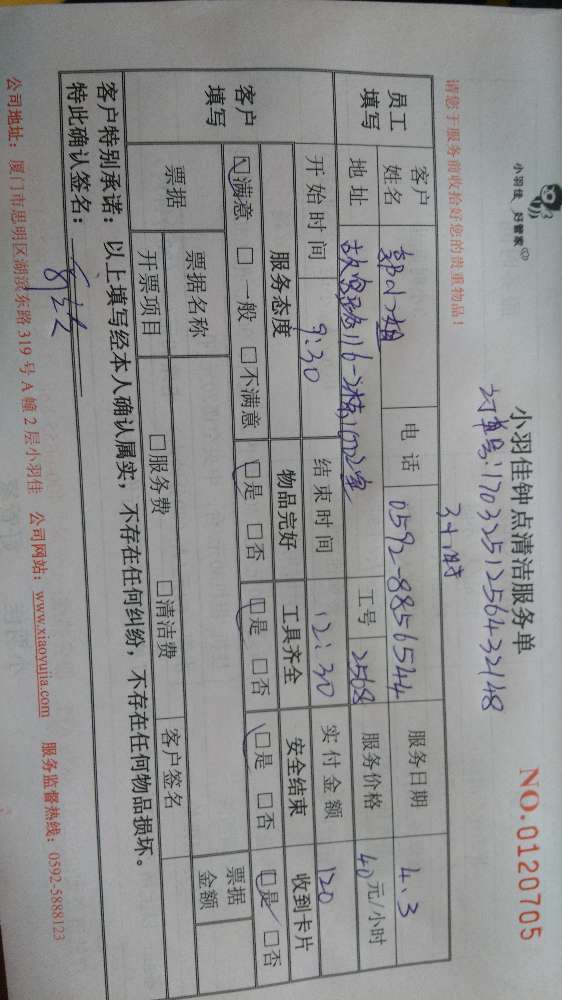 小羽佳 好管家
小羽佳钟点清洁服务单
NO.0120705
订单号:1703251256432148
请您于服务前收拾好您的贵重物品!
3小时
员工填写
客户姓名 郭小姐 电话 0592-8856544 服务日期 4.3
地址 116-2栋1072室 工号 2568 服务价格 40元/小时
开始时间 9:30 结束时间 12:30 实付金额 120
客户填写
服务态度 物品完好 工具齐全 安全结束 收到卡片
☑满意 □一般 □不满意 ☑是 □否 ☑是 □否 ☑是 □否 ☑是 □否
票据 票据名称 客户签名 票据金额
开票项目 □服务费 □清洁费
客户特别承诺:以上填写经本人确认属实,不存在任何纠纷,不存在任何物品损坏。
特此确认签名:
公司地址:厦门市思明区湖滨东路319号A幢2层小羽佳 公司网站:www.xiaoyujia.com 服务监督热线:0592-5888123